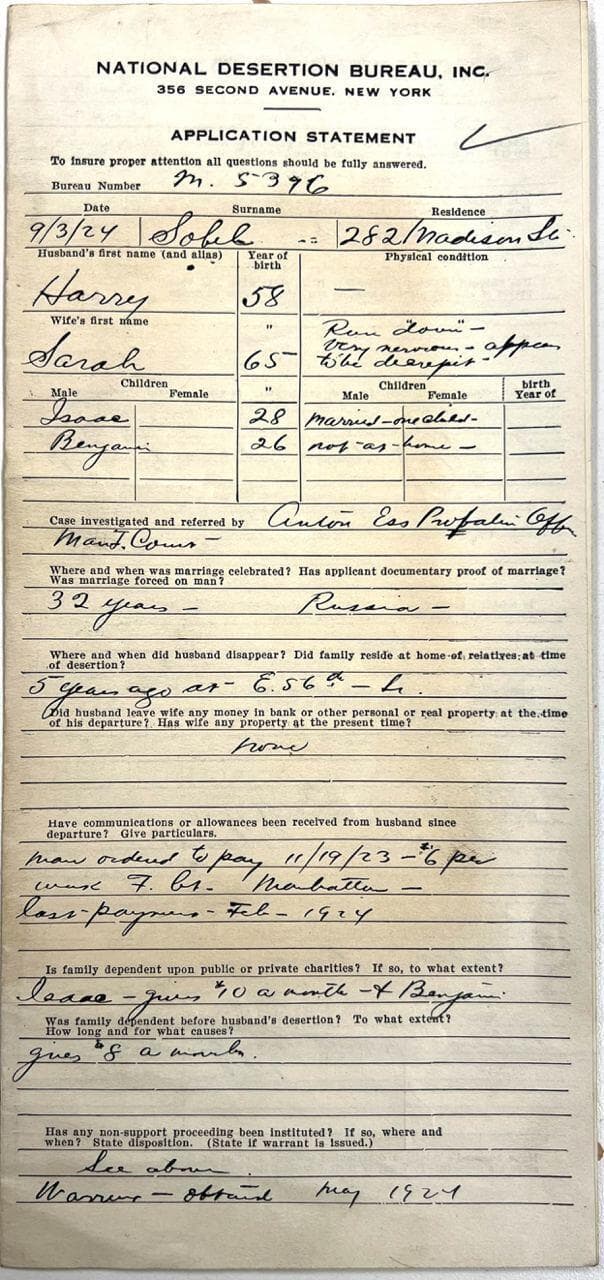 NATIONAL DESERTION BUREAU, INC.
356 SECOND AVENUE, NEW YORK
APPLICATION STATEMENT
To insure proper attention all questions should be fully answered.
Bureau Number M. 5396
Date Surname Residence
9/3/24 Sobel -- 282 Madison St.
Husband's first name (and alias) Year of birth Physical condition
Harry 58 —
Wife's first name " Run "down" -
very nervous - appears
Sarah 65 to be decrepit -
Children " Children birth
Male Female Male Female Year of
Isaac 28 married - one child -
Benjamin 26 not at home -
Case investigated and referred by Anton Ess Probation Offr
Man. F. Court -
Where and when was marriage celebrated? Has applicant documentary proof of marriage?
Was marriage forced on man?
32 years - Russia -
Where and when did husband disappear? Did family reside at home of relatives at time
of desertion?
5 years ago at - E. 56th - St.
Did husband leave wife any money in bank or other personal or real property at the time
of his departure? Has wife any property at the present time?
none
Have communications or allowances been received from husband since
departure? Give particulars.
man ordered to pay 11/19/23 - $6 per
week F. Ct. - Manhattan -
last payment - Feb - 1924
Is family dependent upon public or private charities? If so, to what extent?
Isaac - gives $10 a month - & Benjamin
Was family dependent before husband's desertion? To what extent?
How long and for what causes?
gives $8 a month.
Has any non-support proceeding been instituted? If so, where and
when? State disposition. (State if warrant is issued.)
See above
Warrant - obtained May 1924